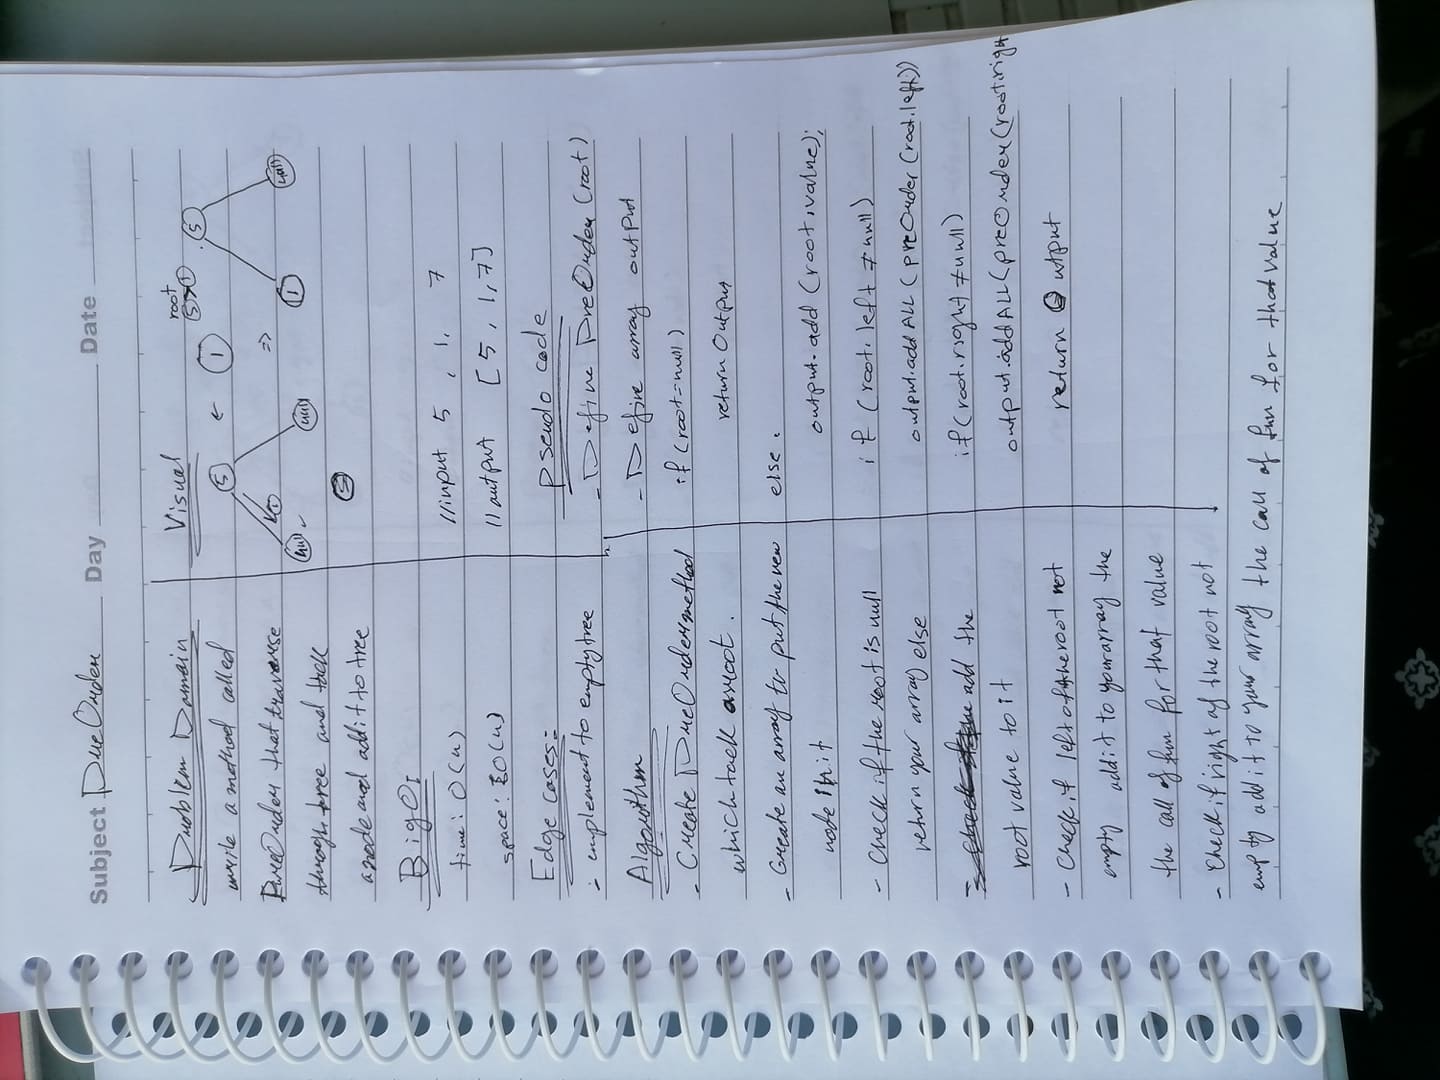 Subject PreOrder Day Date
Problem Domain
write a method called
PreOrder that traverse
through tree and tack
a node and add it to tree
Big O:
time: O(n)
space: O(n)
Edge cases:
- implement to empty tree
Algorithm
- Create PreOrder method
which tack a root.
- Create an array to put the new
node in it
- Check if the root is null
return your array else
add the
root value to it
- Check if left of the root not
empty add it to your array the
the call of fun for that value
- Check if right of the root not
empty add it to your array the call of fun for that value
Visual
5
1
null
null
1
root
5 > 1
=>
5
1
null
5
//input 5, 1, 7
//output [5, 1, 7]
Pseudo code
- Define PreOrder (root)
- Define array output
if (root = null)
return Output
else.
output.add (root.value);
if (root.left ≠ null)
output.addALL (preOrder (root.left))
if (root.right ≠ null)
output.addALL (preOrder (root.righ
return Output